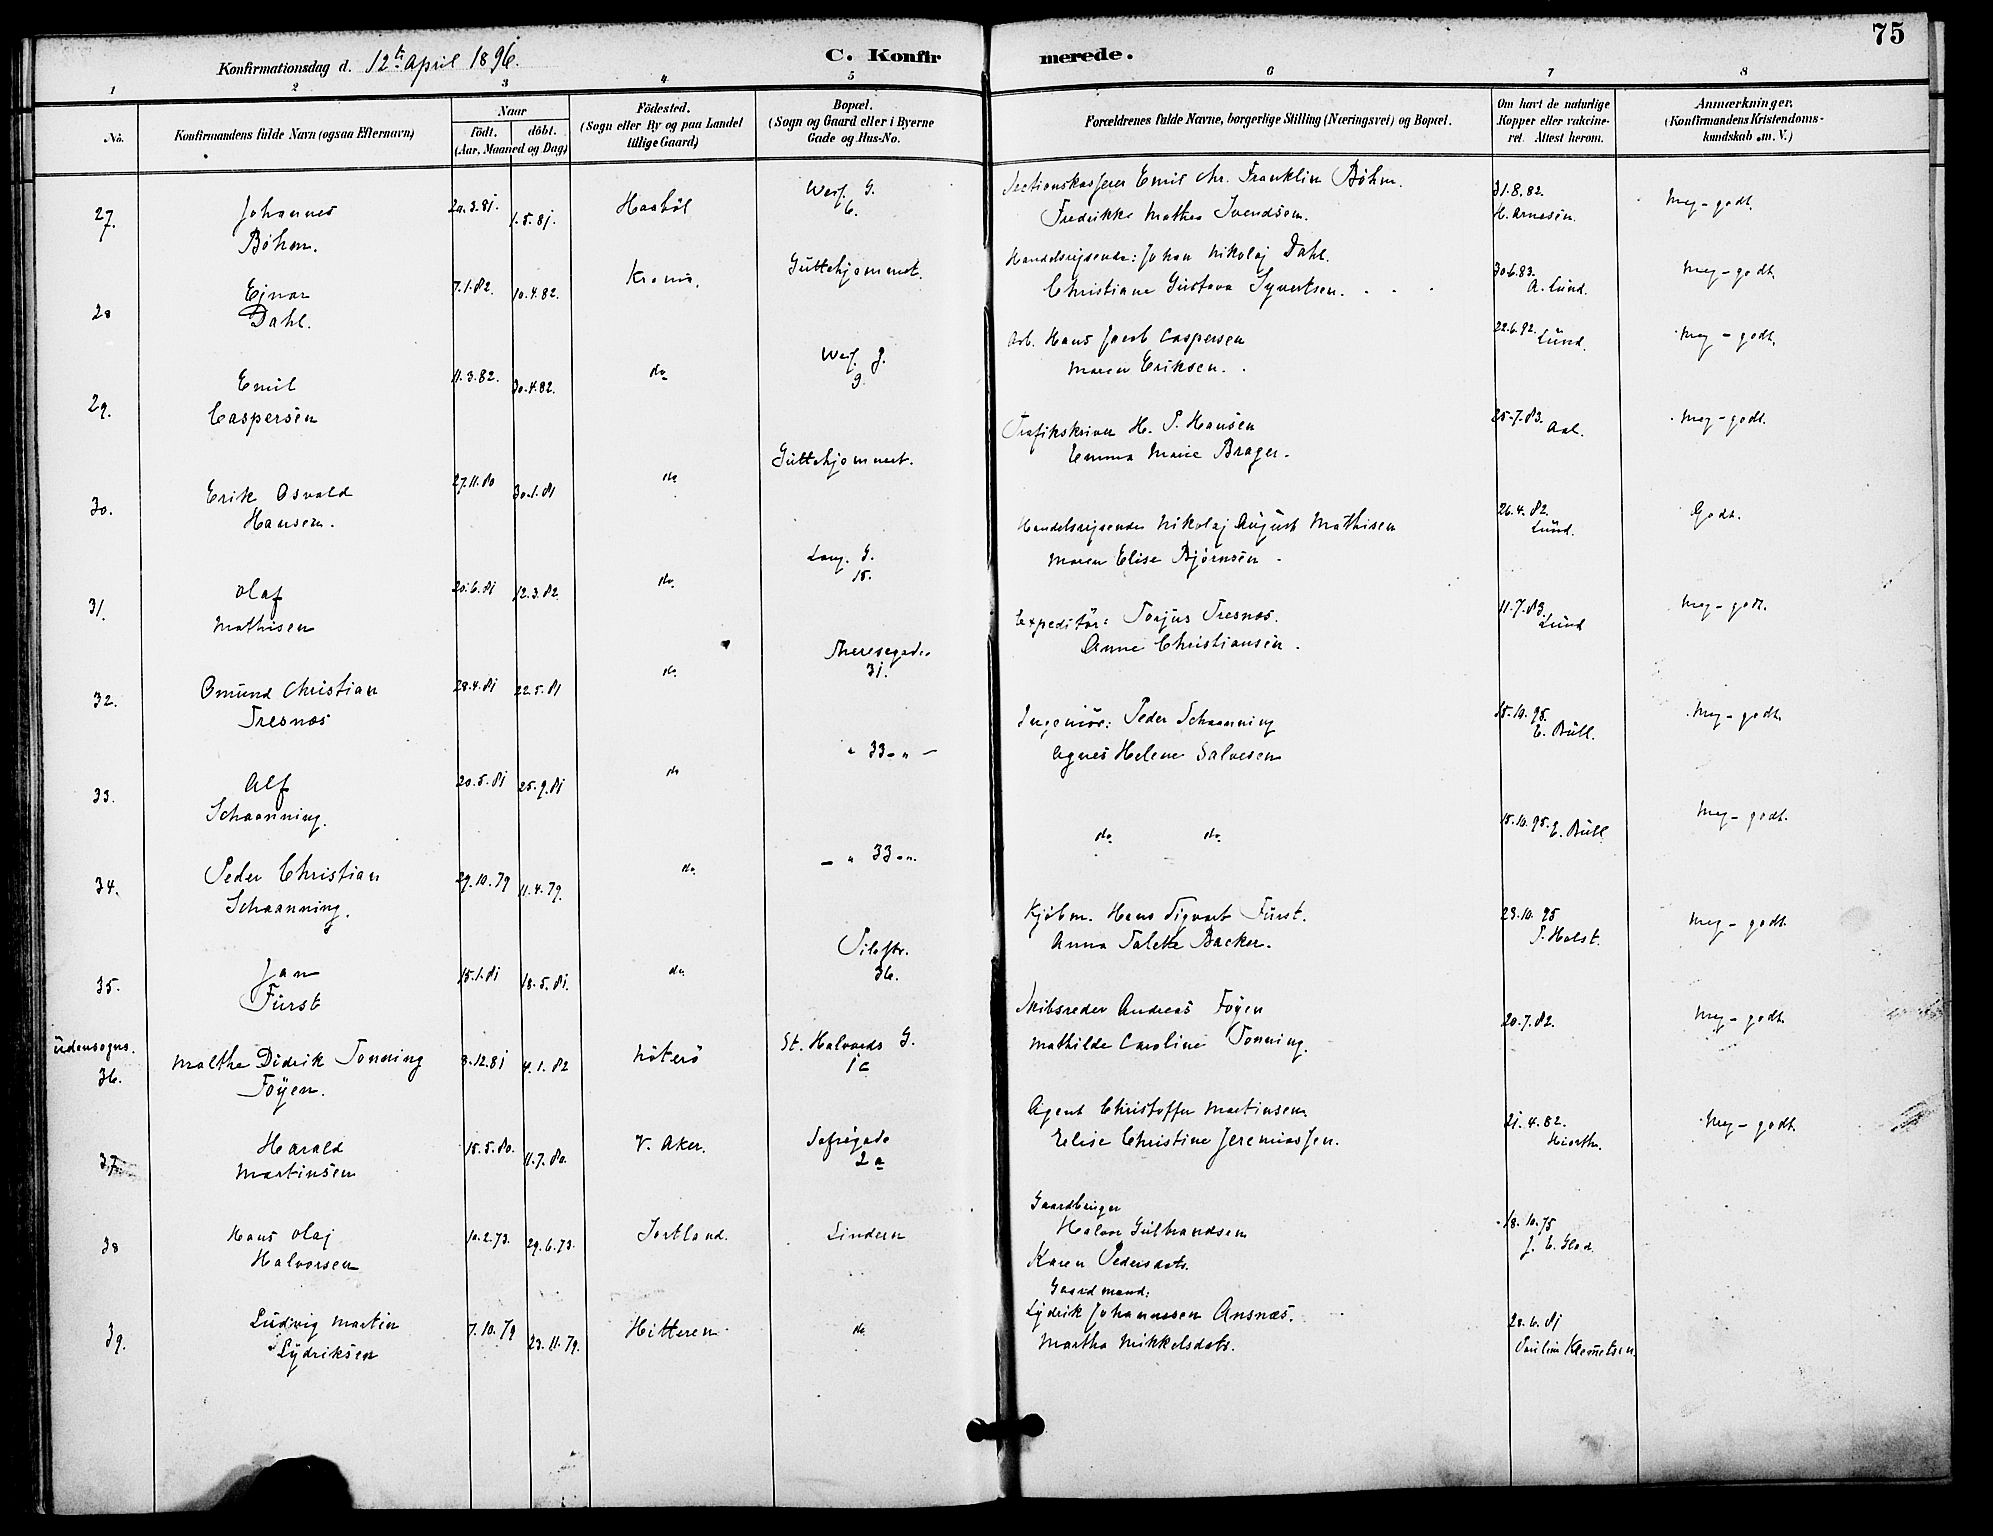 75
Konfirmationsdag d. 12te April 1896.
C. Konfirmerede.
1 2 3 4 5 6 7 8
No.
Konfirmandens fulde Navn (ogsaa Efternavn)
Naar
födt. döbt.
(Aar, Maaned og Dag)
Födested.
(Sogn eller By og paa Landet
tillige Gaard)
Bopæl.
(Sogn og Gaard eller i Byerne
Gade og Hus-No.
Forældrenes fulde Navne, borgerlige Stilling (Næringsvei) og Bopæl.
Om havt de naturlige
Kopper eller vakcine-
ret. Attest herom.
Anmærkninger.
(Konfirmandens Kristendoms-
kundskab o.m.V.)
27. Johannes
Bøhm.
20.3.81. 1.5.81.
Haabøl
6.
Sectionskasserer Emil Chr. Franklin Bøhm.
Fredrikke Mathea Svendsen.
31.8.82.
H. Arnesen.
Meg-godt.
28 Ejnar
Dahl.
7.1.82. 10.4.82.
Kra.
Guttehjemmet.
Handelsrejsende: Johan Nikolaj Dahl.
Christiane Gustava Syvertsen.
30.6.83.
A. Lund.
Meg-godt.
29. Emil
Caspersen
11.3.82. 30.4.82.
do
9.
Arb. Hans Jacob Caspersen
Maren Eriksen.
22.6.92.
Lund.
Meg-godt.
30. Erik Osvald
Hansen.
27.11.80 30.1.81
do
Guttehjemmet.
Trafikskriver H. P. Hansen
Emma Marie Brager.
25.7.83. Aal.
Meg-godt.
31. Olaf
Mathisen
20.6.81 12.3.82
do
Lang. G.
15.
Handelsrejsende Nikolaj August Mathisen
Maren Elise Bjørnsen
26.4.82.
Lund.
Godt.
32. Omund Christian
Tresnæs
28.4.81 22.5.81
do
Theresegade
31.
Expeditør: Torjus Tresnæs.
Anne Christiansen.
11.7.83.
Lund
Meg-godt.
33. Alf
Schaanning.
20.5.81 25.9.81
do
" 33 " -
Ingeniør: Peder Schaanning
Agnes Helene Salvesen
15.10.95.
E. Bull.
Meg-godt.
34. Peder Christian
Schaanning.
29.10.79 11.4.79.
do
- " 33 "
do do
15.10.95. E. Bull
Meg-godt.
35. Jan
Fürst
15.1.81 18.5.81.
do
Pilestr.
36.
Kjøbm. Hans Sigvart Fürst.
Anna Talette Backer.
23.10.95
P. Holst.
Meg-godt.
udensogns.
36. Malthe Didrik Tonning
Föyen.
3.12.81 4.1.82
Nöterö
St. Halvards G.
1c
Skibsreder Andreas Föyen
Mathilde Caroline Tonning.
20.7.82.
Meg-godt.
37. Harald
Martinsen
15.5.80. 11.7.80.
V. Aker.
Sofiegade
2a
Agent Christoffer Martinsen
Elise Christine Jeremiassen.
21.4.82.
Hiorth.
Meg-godt.
38 Hans Olaj
Halvorsen
10.2.73. 29.6.73.
Lindern
Gaardbruger
Halvor Gulbrandsen
Karen Pedersdatt.
18.10.75
39. Ludvig Martin
Lydriksen
7.10.79 23.11.79.
Hitteren
do
Gaardmand:
Lydrik Johannesen Ansnæs.
Martha Mikkelsdatt.
20.6.81
Klemetsen.